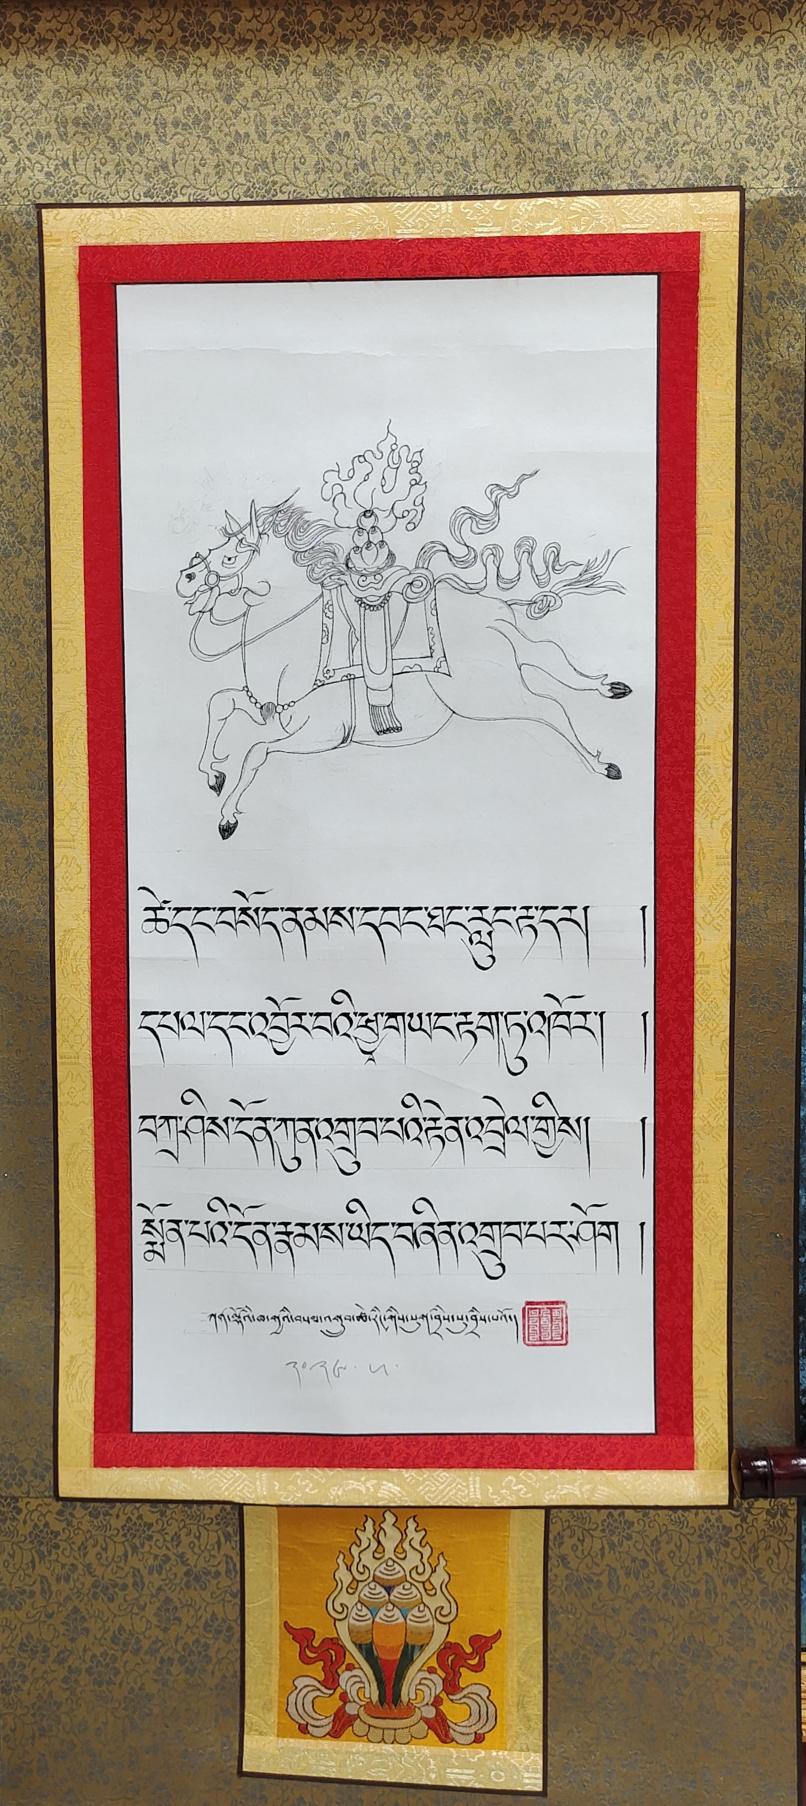 ཚེ་དང་བསོད་ནམས་དབང་ཐང་རླུང་རྟ་དར། །
དཔལ་དང་འབྱོར་བའི་ཕྱྭ་གཡང་རྟག་ཏུ་འཁོར། །
བཀྲ་ཤིས་དོན་ཀུན་འགྲུབ་པའི་རྟེན་འབྲེལ་གྱིས། །
སྨོན་པའི་དོན་རྣམས་ཡིད་བཞིན་འགྲུབ་པར་ཤོག །